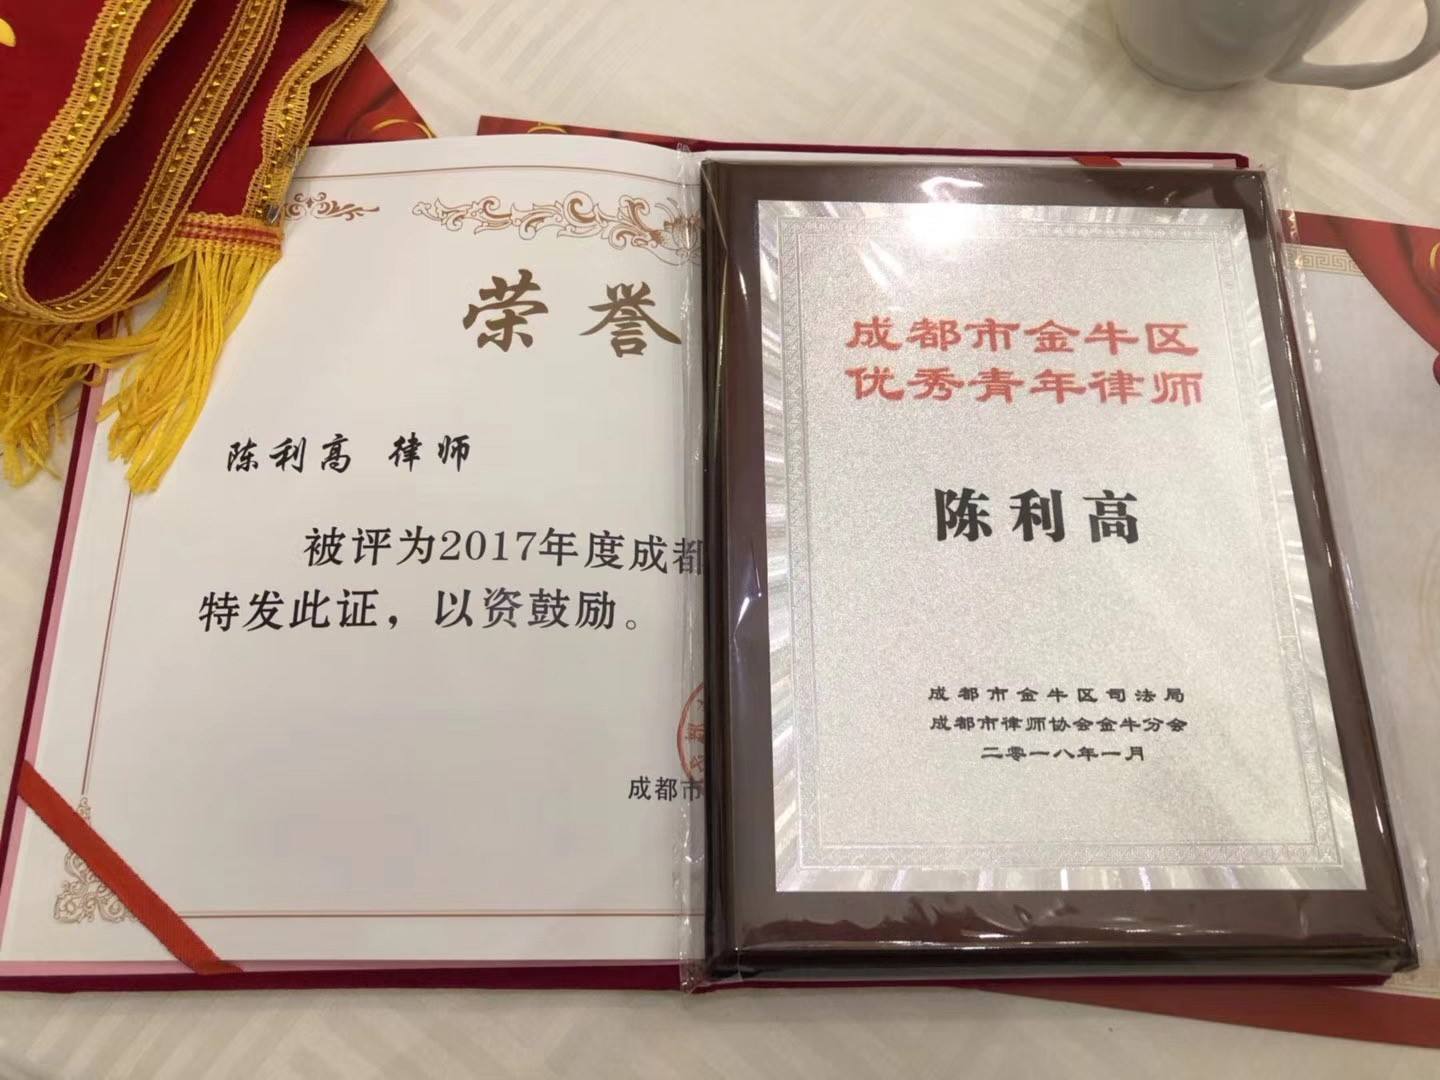 荣誉
陈利高 律师
被评为2017年度成都
特发此证，以资鼓励。
成都市
成都市金牛区
优秀青年律师
陈利高
成都市金牛区司法局
成都市律师协会金牛分会
二零一八年一月